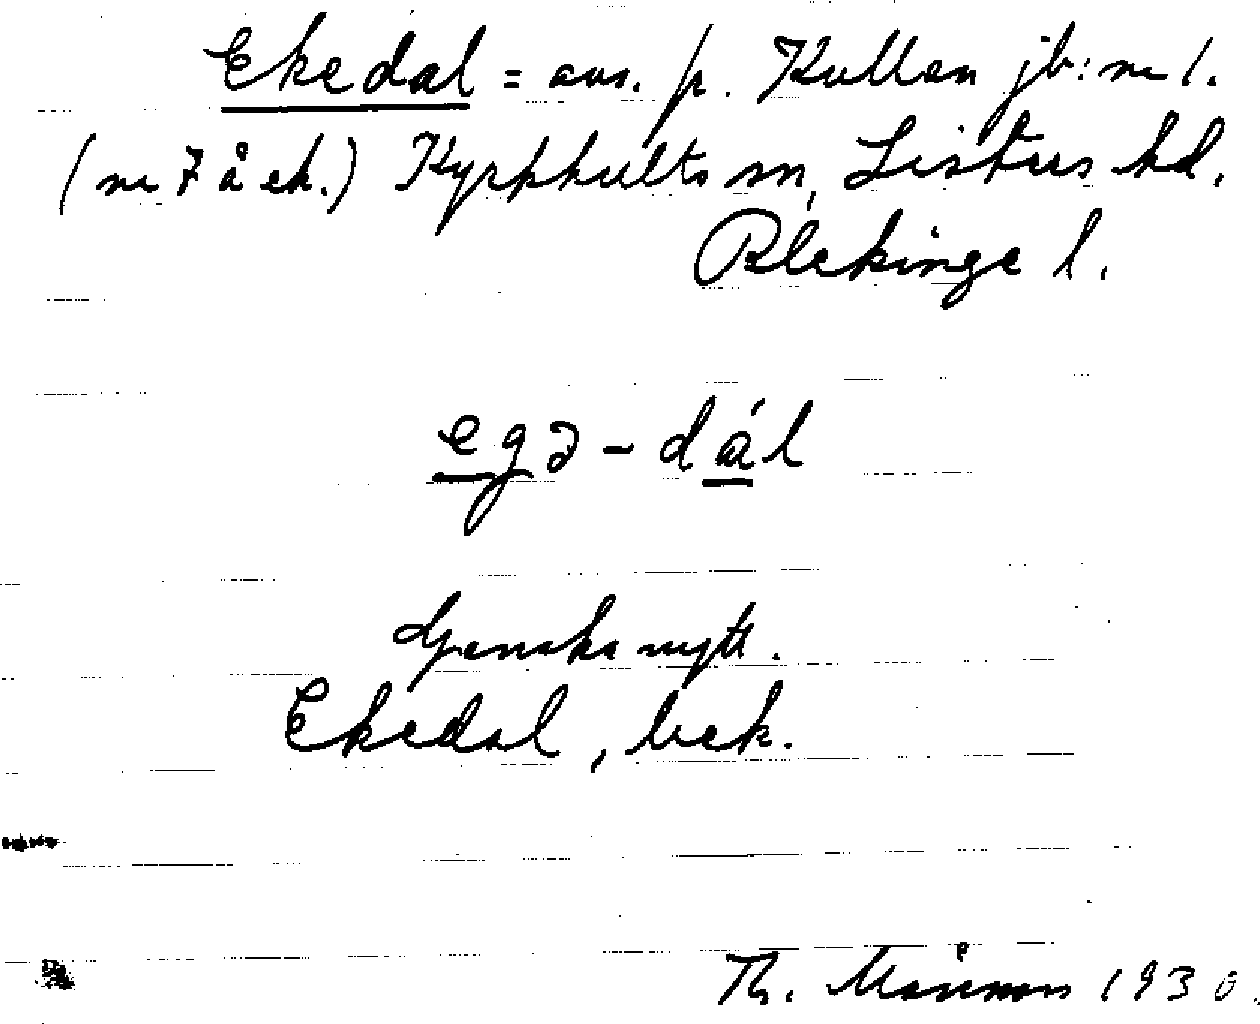 Ekedal = avs. p. Kullen jb: nr 1.
(nr 7 å ek.) Kyrkhults sn, Listers hd.
Blekinge l.
egə - dál
Ganska nytt.
Ekedal, bek.
Th. Månsson 1930.